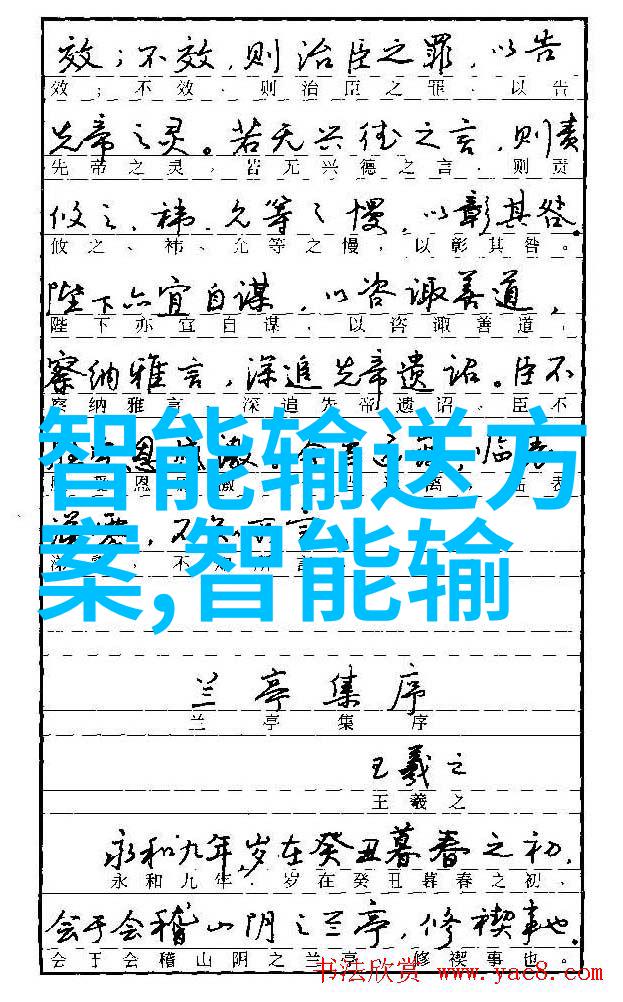 效；不效，则治臣之罪，以告
效；不效、则治臣之罪、以告
先帝之灵。若无兴德之言，则责
先帝之灵，若无兴德之言、则责
攸之、祎、允等之慢，以彰其咎。
攸之、祎、允等之慢，以彰其咎。
陛下亦宜自谋，以咨诹善道，
陛下亦宜自谋，以咨诹善道，
察纳雅言，深追先帝遗诏。臣不
察纳雅言、深追先帝遗诏。臣不
智能输送方
案,智能输
恩
临表
不
言
兰亭集序
兰亭集序
王羲之
王羲之
永和九年,岁在癸丑暮春之初,
永和九年.岁在癸丑暮春之初、
会于会稽山阴之兰亭，修禊事也.
会于会稽山阴之兰亭 修禊事也。
书法欣赏 www.yac8.com